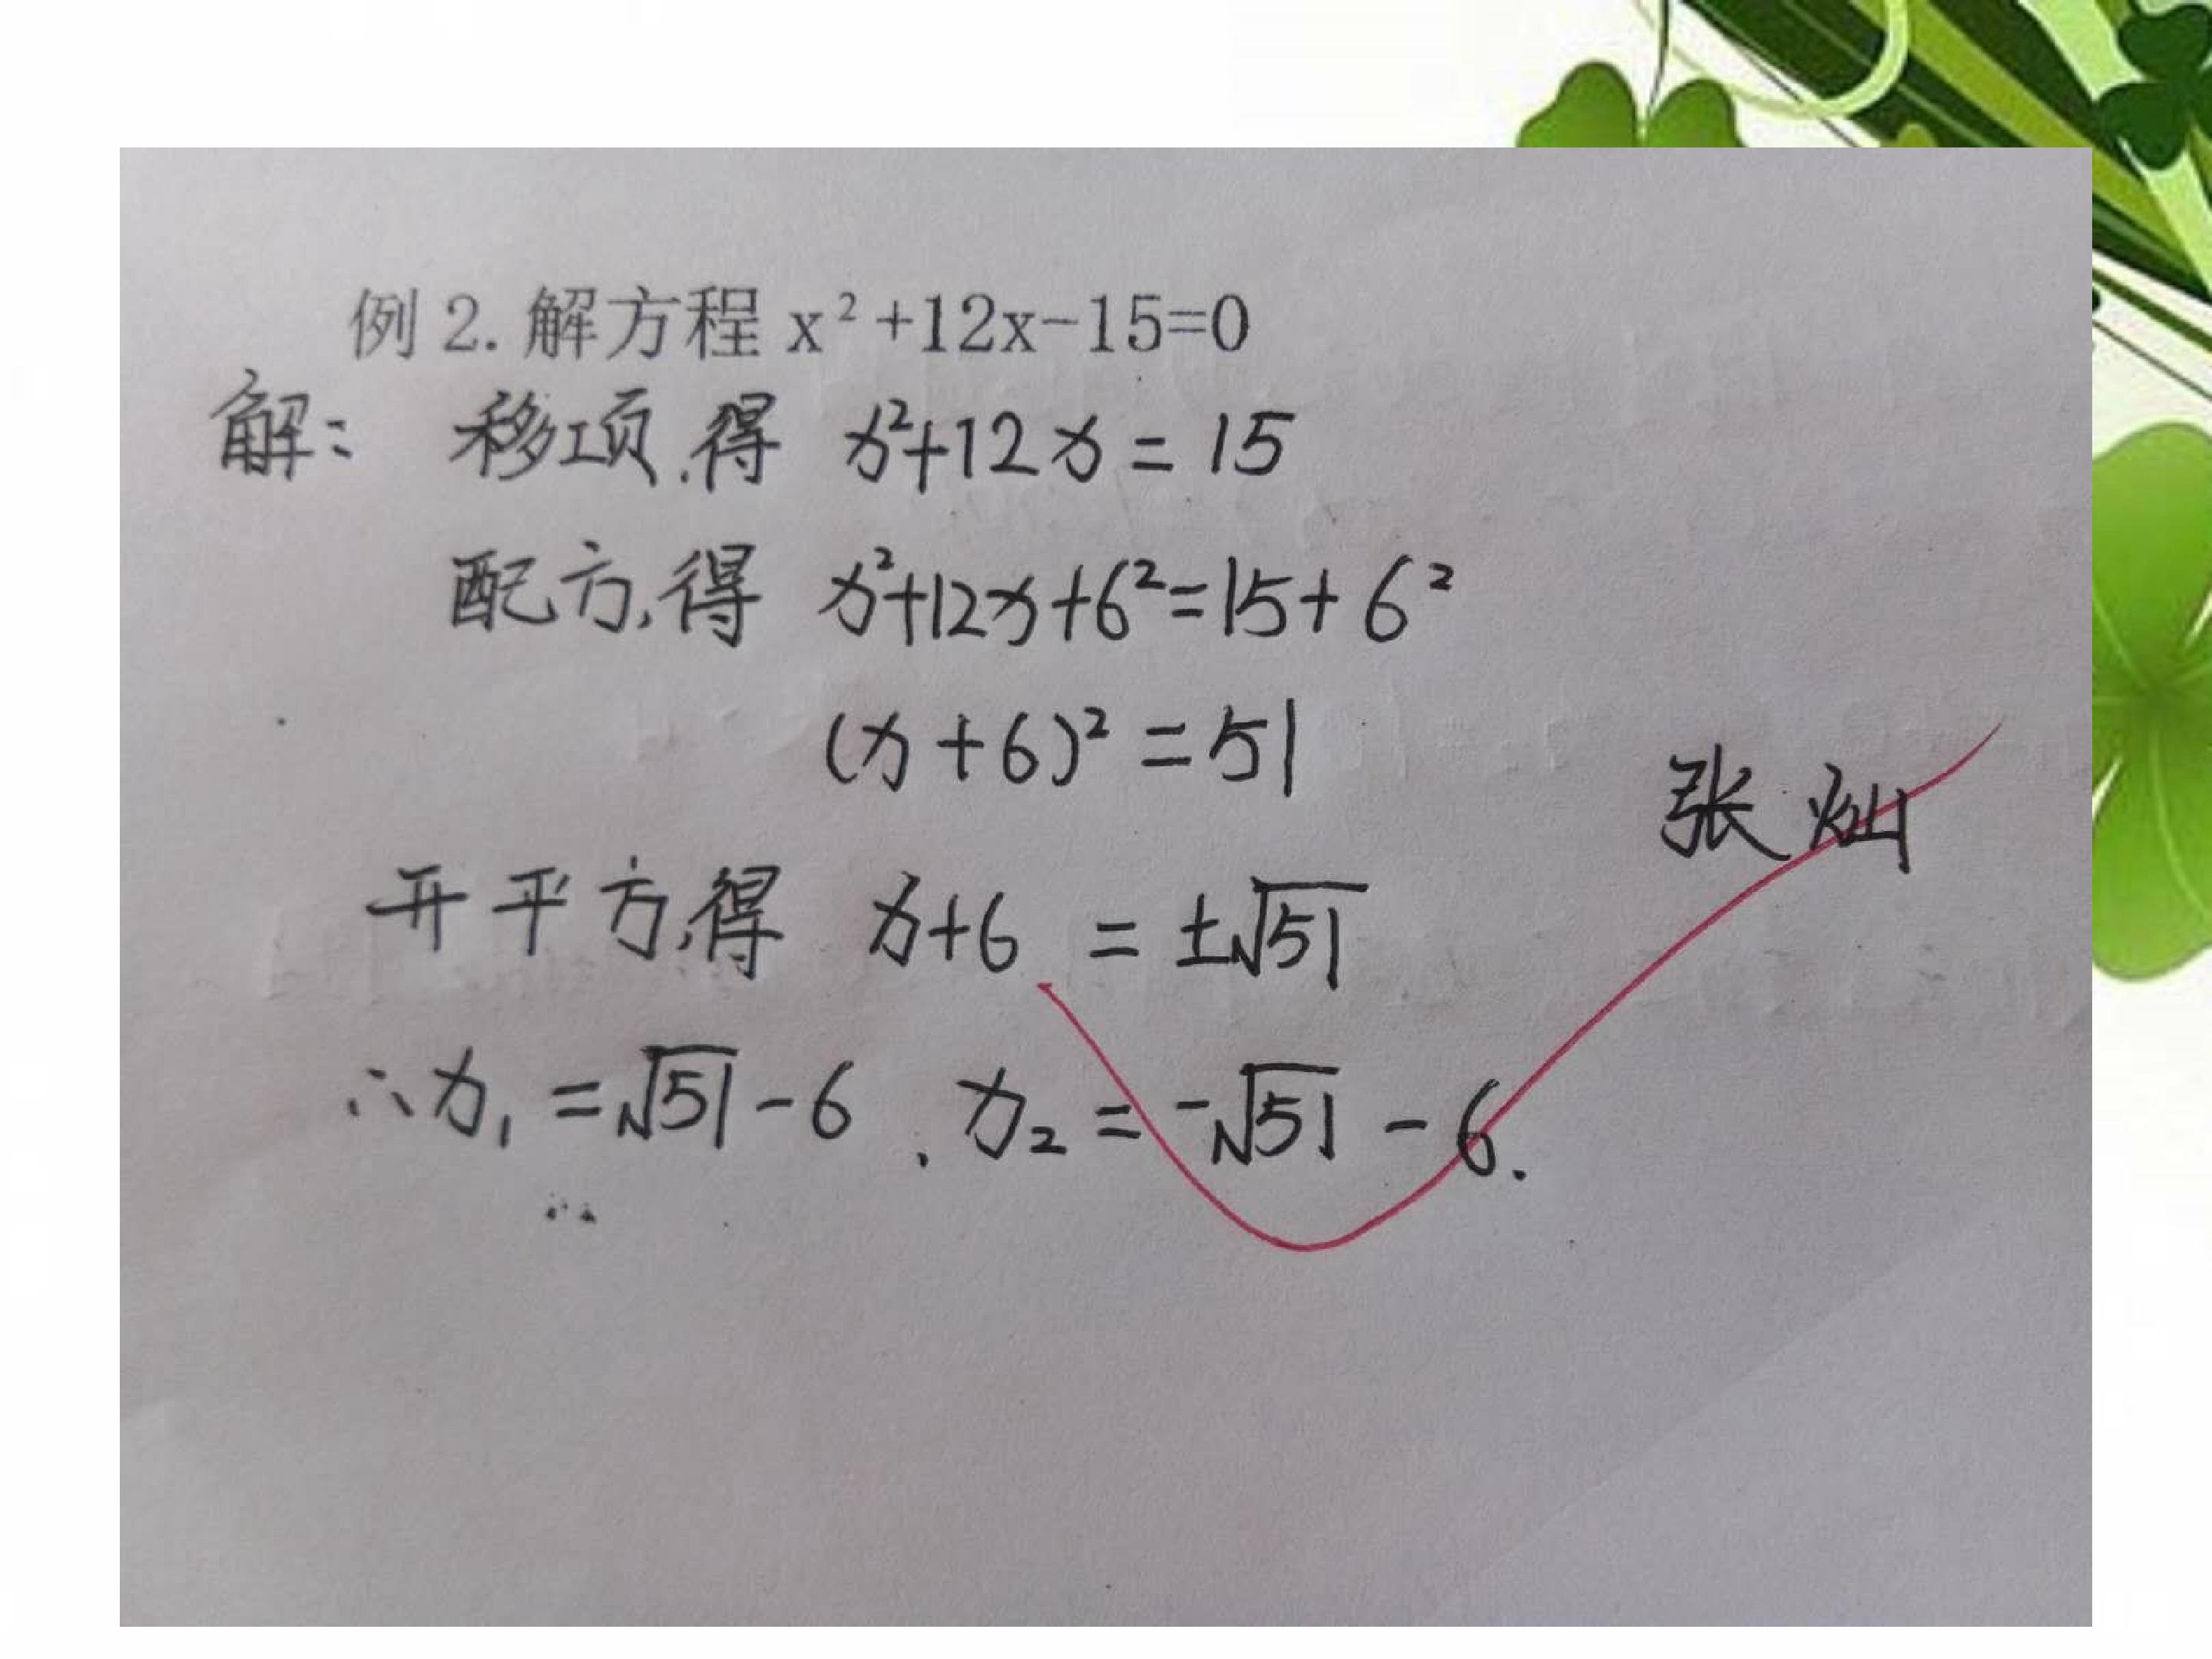 例 2. 解方程 x²+12x-15=0
解: 移项,得 x²+12x = 15
配方,得 x²+12x+6²=15+6²
(x+6)²=51
张灿
开平方,得 x+6 = ±√51
∴x₁=√51-6, x₂=-√51-6.